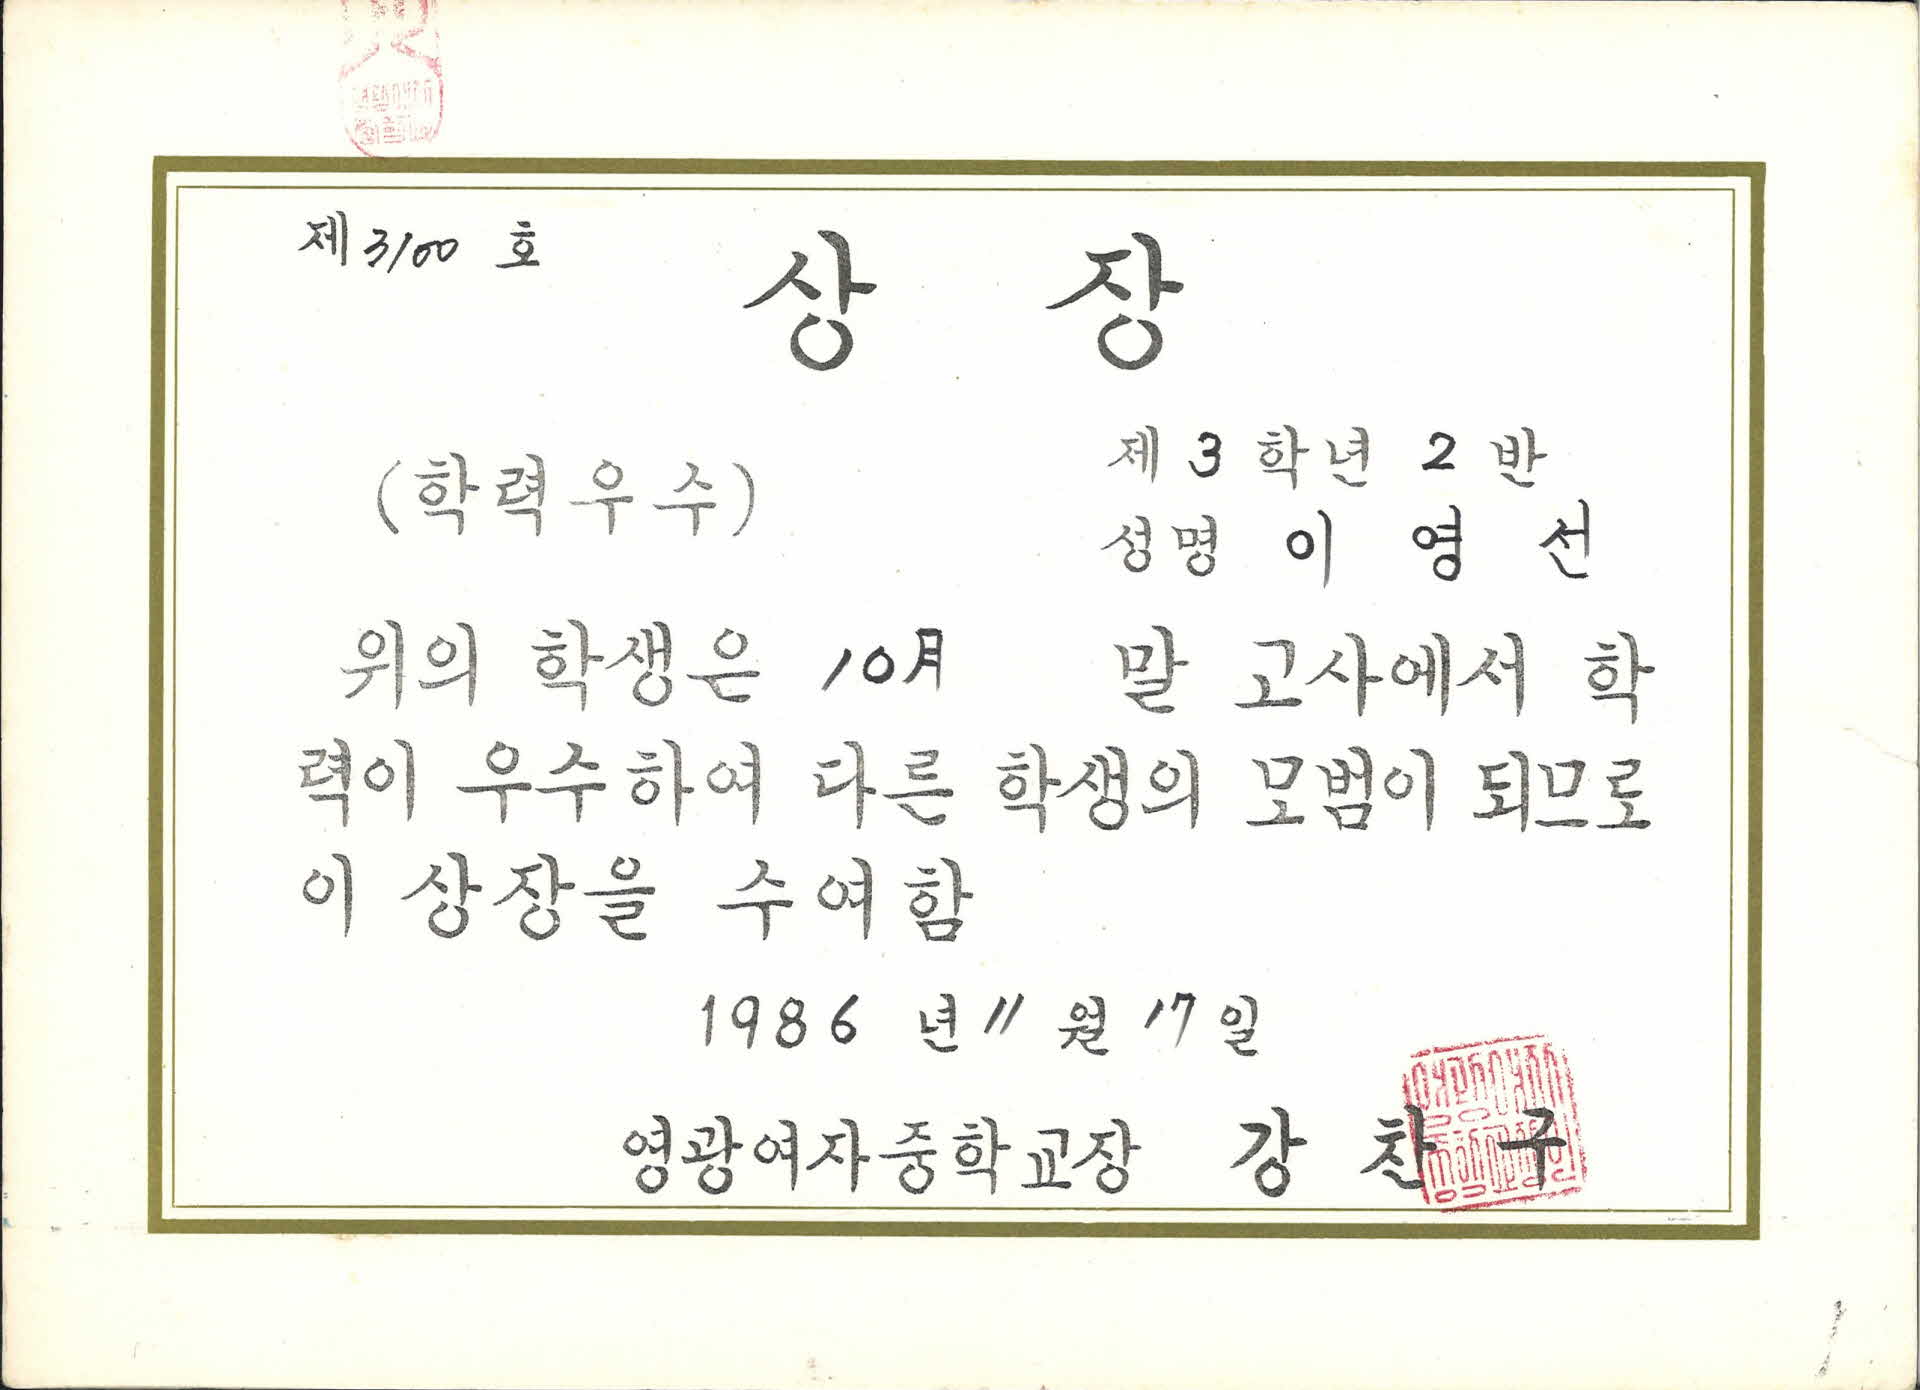 제 3100 호
상 장
(학력우수)
제 3 학년 2 반
성명 이 영 선
위의 학생은 10月 말 고사에서 학
력이 우수하여 다른 학생의 모범이 되므로
이 상장을 수여함
1986 년 11 월 17 일
영광여자중학교장 강 찬 구